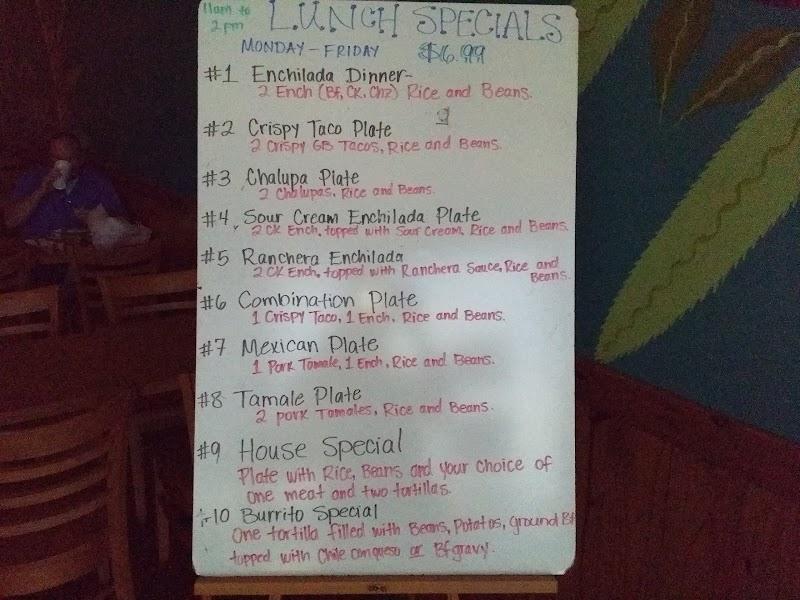 11am to
2pm
LUNCH SPECIALS
MONDAY-FRIDAY $6.99
#1 Enchilada Dinner-
2 Ench (Bf, CK, Chz) Rice and Beans.
#2 Crispy Taco Plate
2 Crispy GB Tacos, Rice and Beans.
#3 Chalupa Plate
2 Chalupas, Rice and Beans.
#4 Sour Cream Enchilada Plate
2 CK Ench, topped with Sour Cream, Rice and Beans.
#5 Ranchera Enchilada
2 CK Ench, topped with Ranchera Sauce, Rice and
Beans.
#6 Combination Plate
1 Crispy Taco, 1 Ench, Rice and Beans.
#7 Mexican Plate
1 Pork Tamale, 1 Ench, Rice and Beans.
#8 Tamale Plate
2 pork Tamales, Rice and Beans.
#9 House Special
Plate with Rice, Beans and your choice of
one meat and two tortillas.
10 Burrito Special
One tortilla filled with Beans, Potatos, ground Bf
topped with Chile conqueso or Bf gravy.